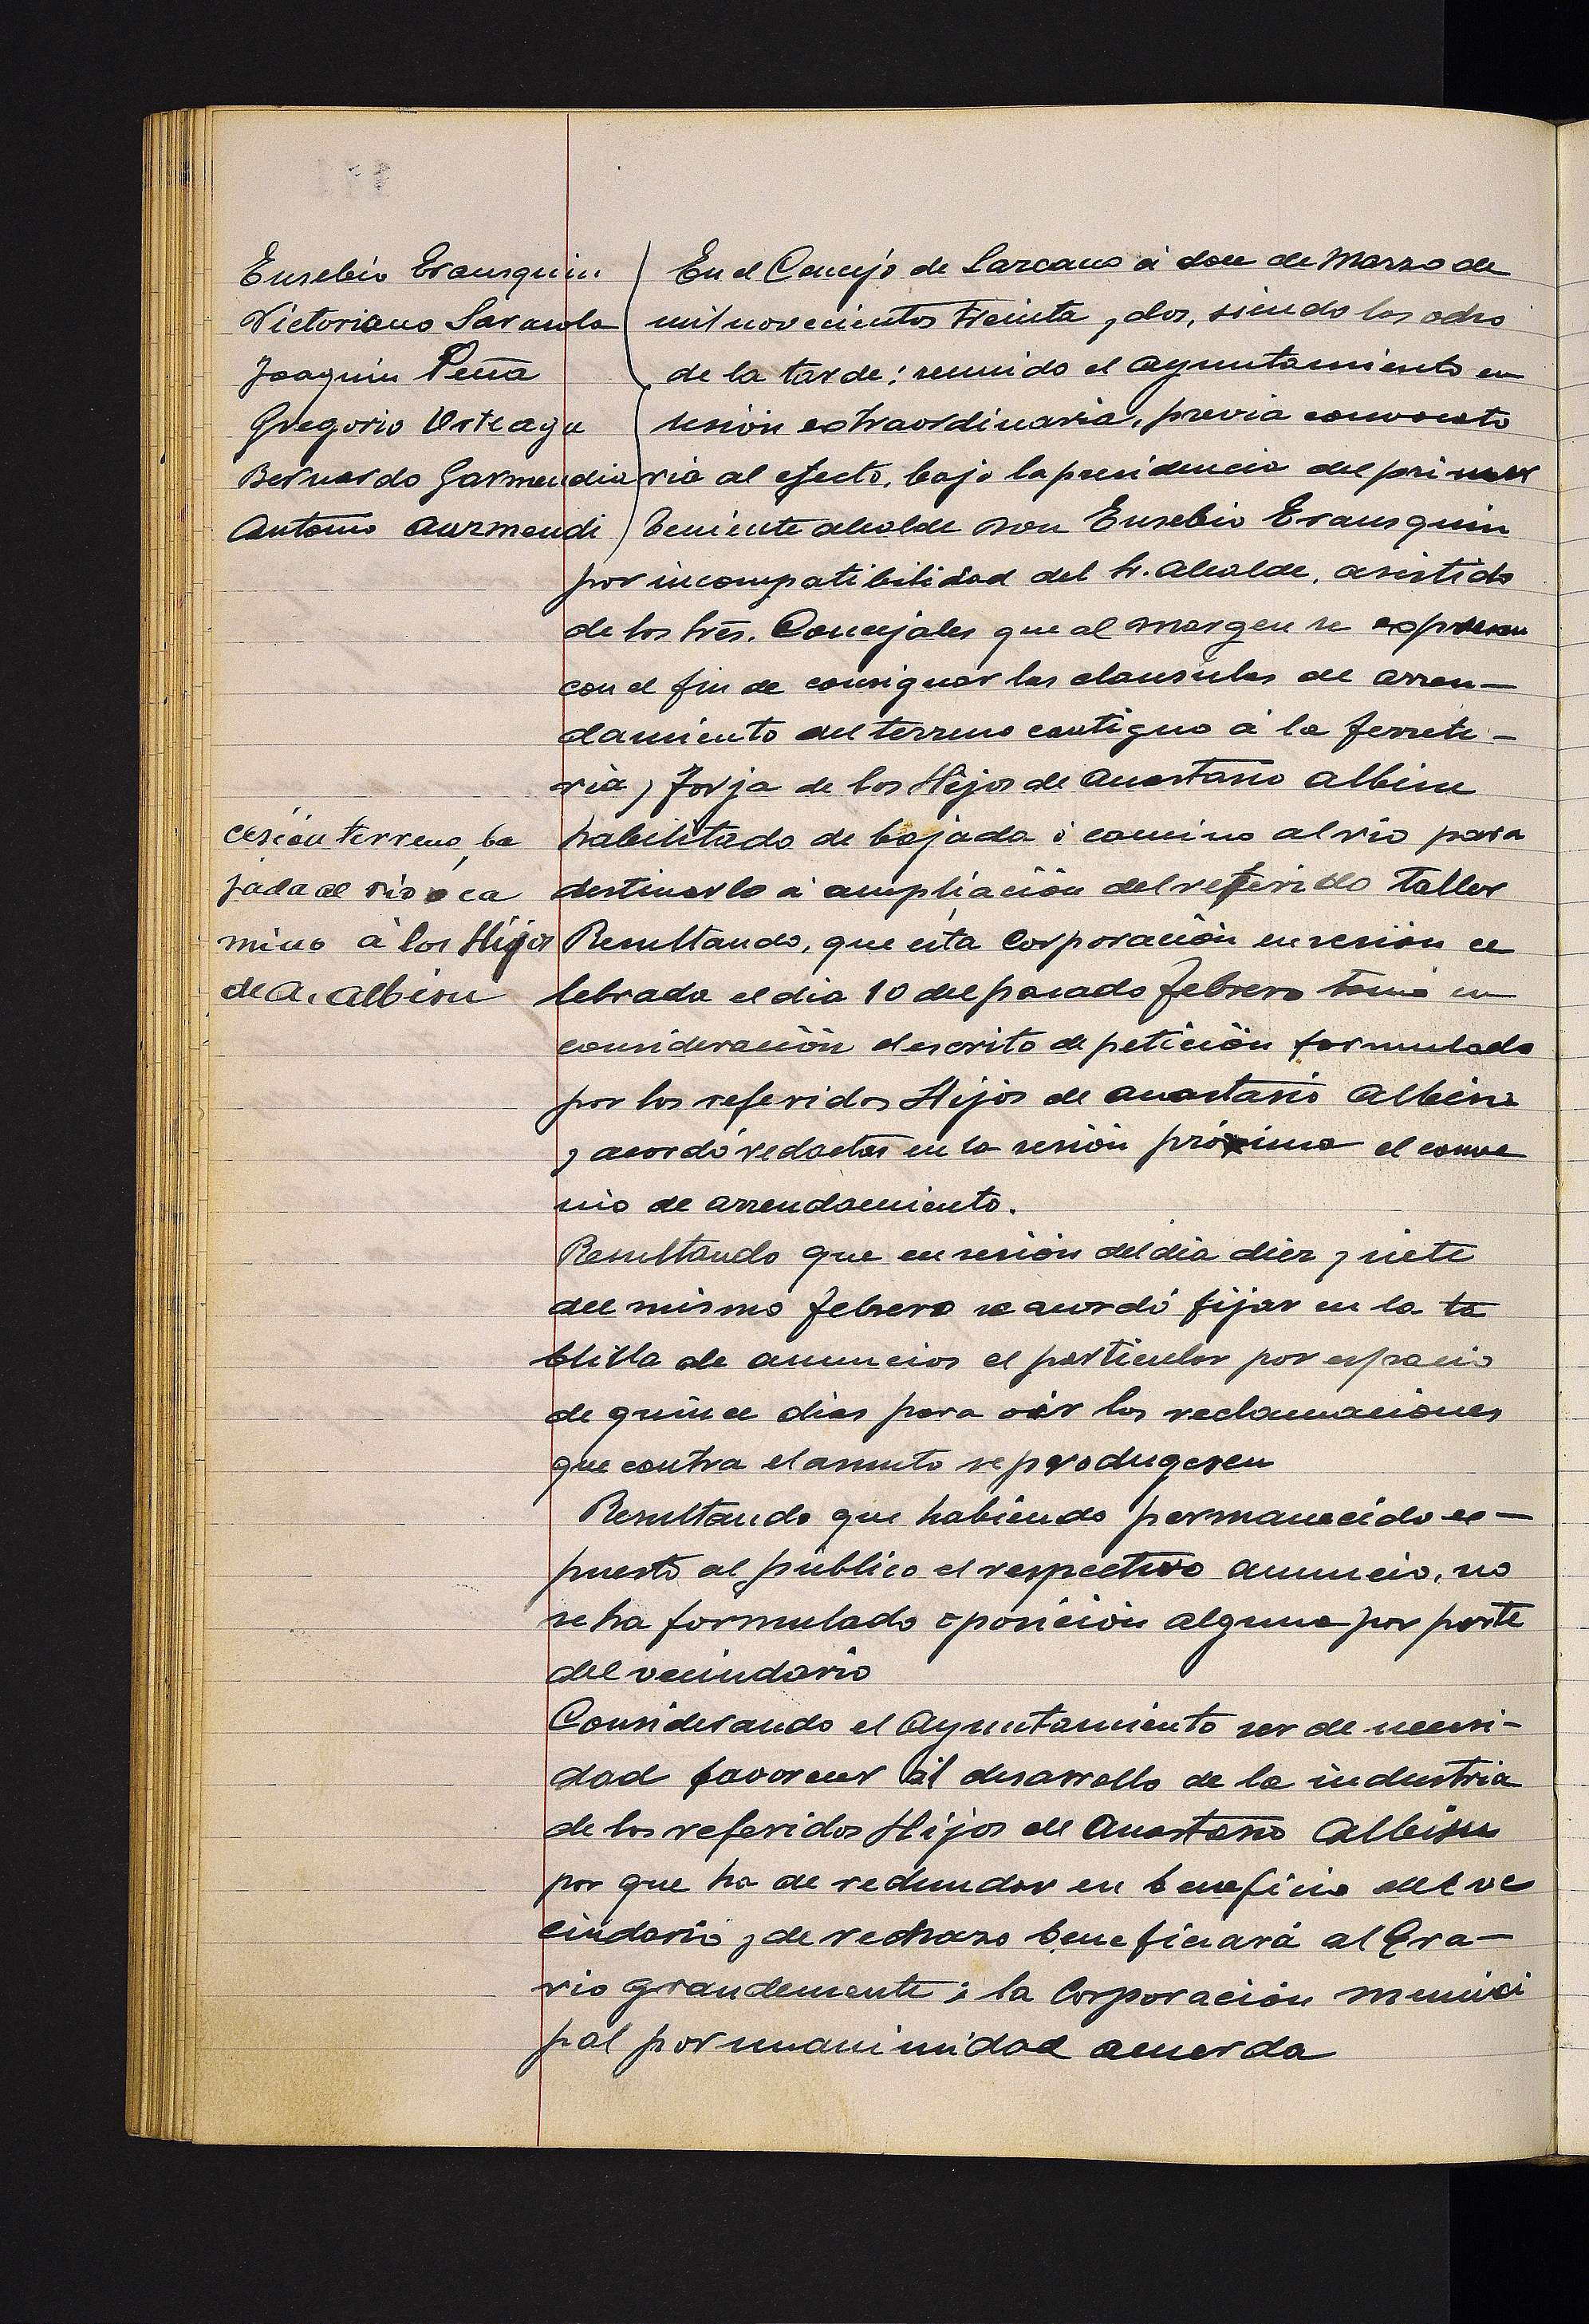 Eusebio Erausquin
Victoriano Sarasola
Joaquin Peña
Gregorio Urteaga
Bernardo Garmendia
Antonio Aurmendi
cesión terreno, ba
jada al rio o ca
mino á los Hijos
de A. Albisu
En el Concejo de Lazcano á doce de Marzo de
mil novecientos treinta y dos, siendo las ocho
de la tarde; reunido el Ayuntamiento en
sesión extraordinaria, previa convocato
ria al efecto, bajo la presidencia del primer
teniente alcalde Don Eusebio Erausquin
por incompatibilidad del Sr. Alcalde, asistido
de los Sres. Concejales que al margen se expresan
con el fin de consignar las clausulas de arren-
damiento del terreno contiguo á la ferrete-
ria y Forja de los Hijos de Anastasio Albisu
habilitado de bajada ó camino al rio para
destinarlo á ampliación del referido taller
Resultando, que esta Corporación en sesión ce
lebrada el dia 10 del pasado febrero tomó en
consideración el escrito de petición formulado
por los referidos Hijos de Anastasio Albisu
y acordó redactar en la sesión próxima el conve
nio de arrendamiento.
Resultando que en sesión del dia diez y siete
del mismo febrero se acordó fijar en la ta
blilla de anuncios el particular por espacio
de quince dias para oir las reclamaciones
que contra el asunto se produgesen
Resultando que habiendo permanecido ex-
puesto al público el respectivo anuncio, no
se ha formulado oposición alguna por parte
del vecindario
Considerando el Ayuntamiento ser de necesi-
dad favorecer al desarrollo de la industria
de los referidos Hijos de Anastasio Albisu
por que ha de redundar en beneficio del ve
cindario y de rechazo beneficiará al Era-
rio grandemente; la Corporación munici
pal por unanimidad acuerda